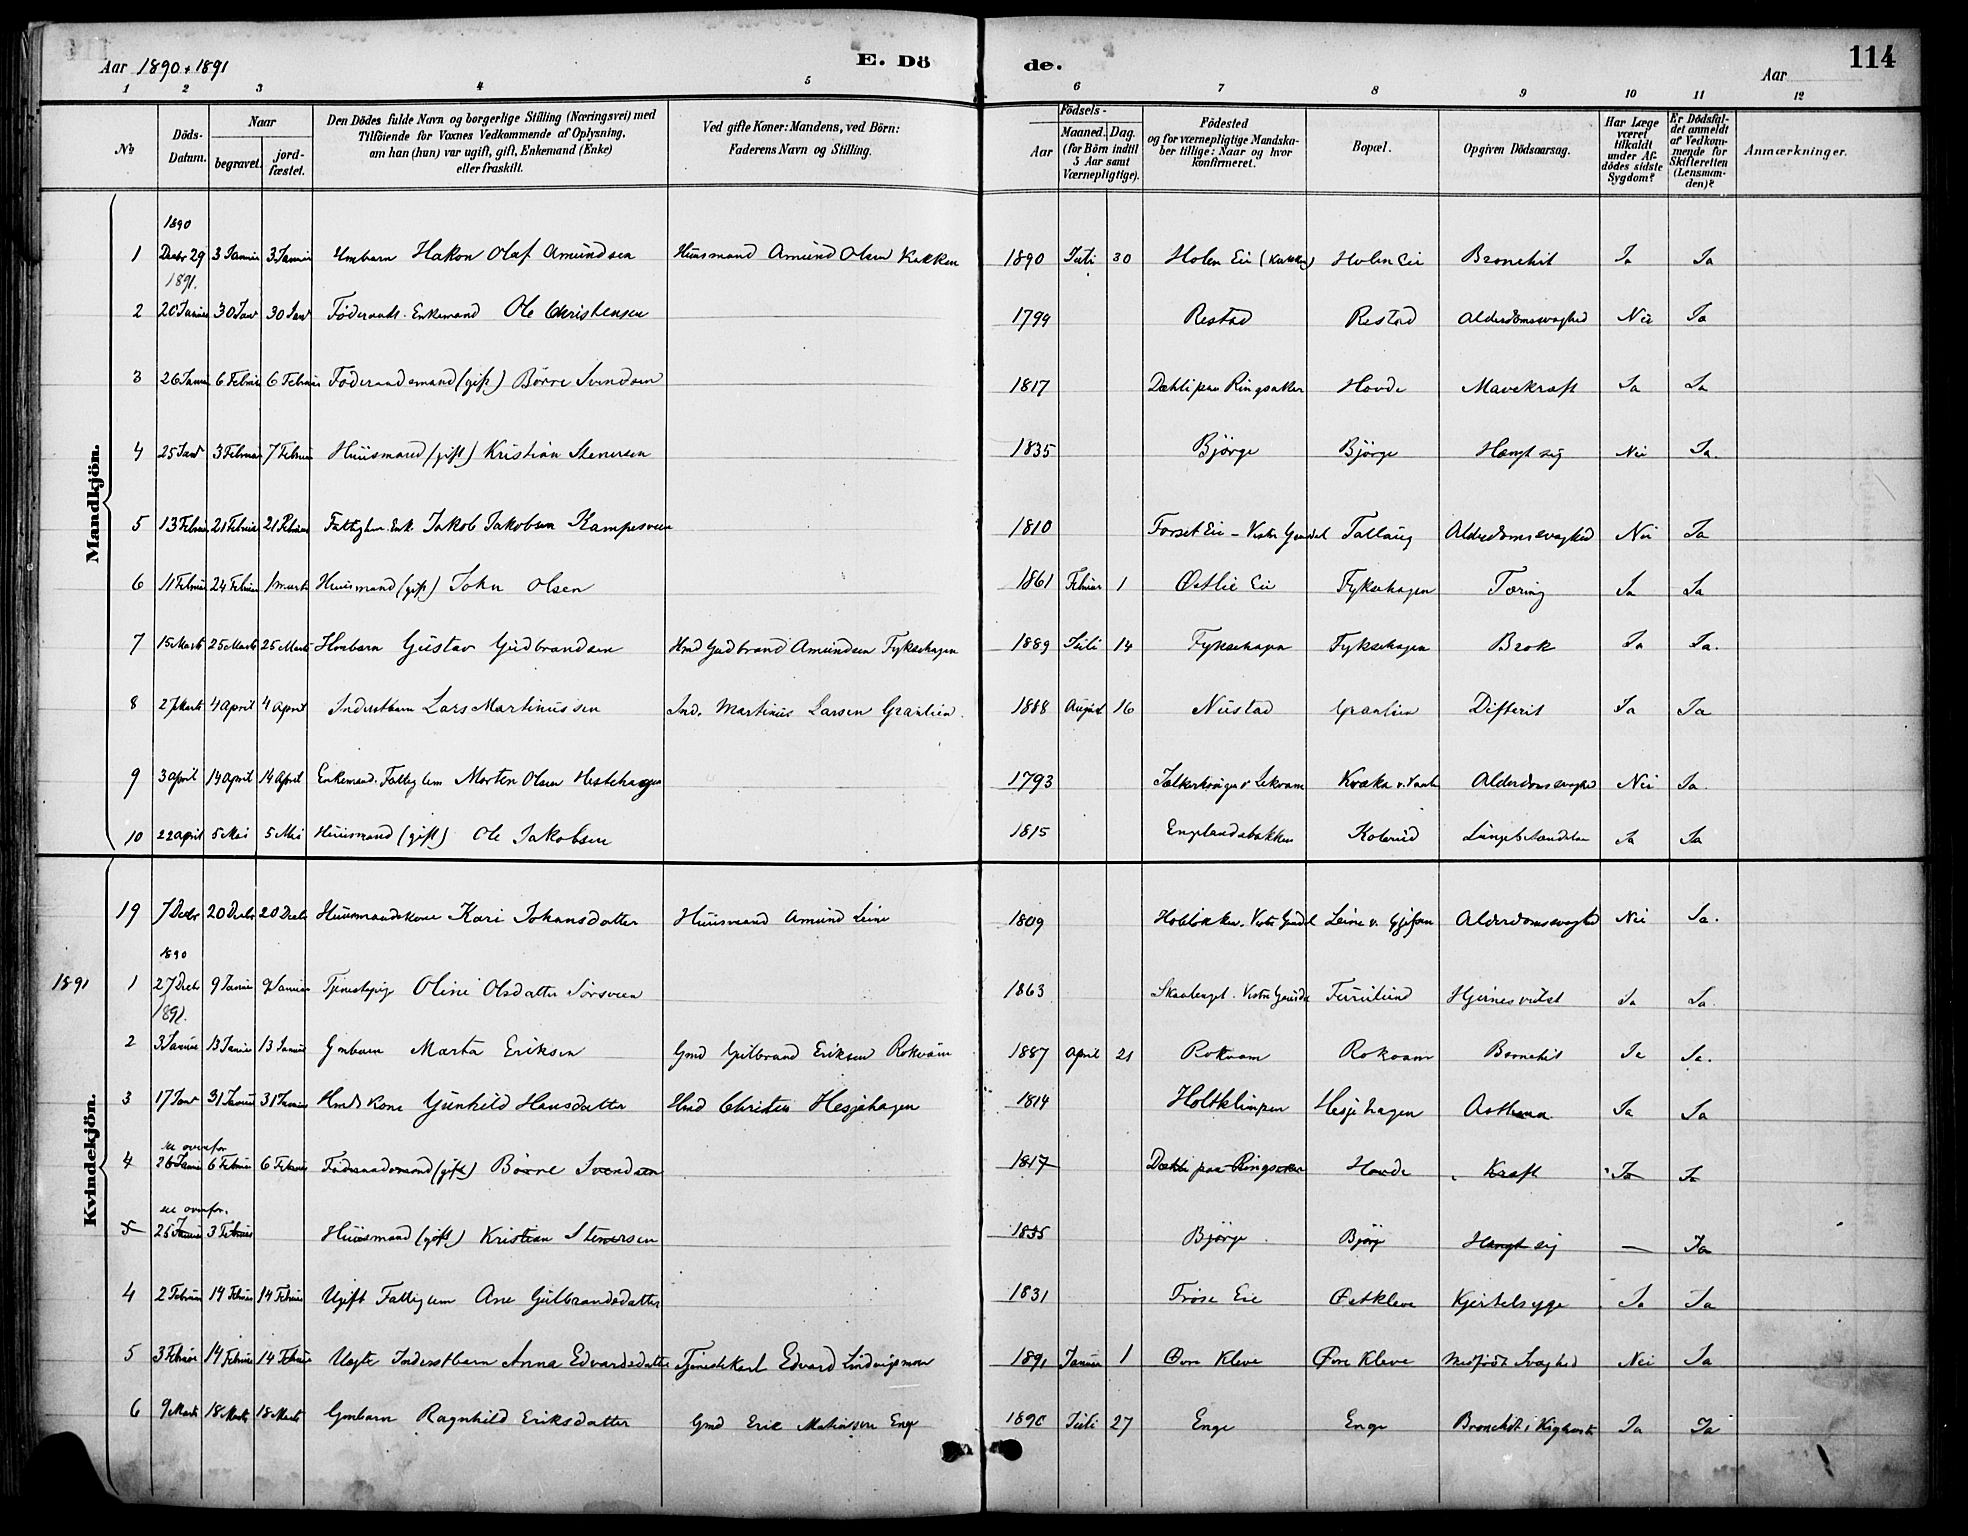 Aar 1890 + 1891
E. Dö
de.
Aar
114
1 2 3 4 5 6 7 8 9 10 11 12
No
Döds-Datum.
Naar
begravet.
jord-fæstet.
Den Dödes fulde Navn og borgerlige Stilling (Næringsvei) med
Tilföiende for Voxnes Vedkommende af Oplysning,
om han (hun) var ugift, gift, Enkemand (Enke)
eller fraskilt.
Ved gifte Koner: Mandens, ved Börn:
Faderens Navn og Stilling.
Födsels-
Aar
Maaned. Dag.
(for Börn indtil
5 Aar samt
Værnepligtige).
Födested
og for værnepligtige Mandska-
ber tillige: Naar og hvor
konfirmeret.
Bopæl.
Opgiven Dödsaarsag.
Har Læge
været
tilkaldt
under Af-
dödes sidste
Sygdom?
Er Dödsfal-
det anmeldt
af Vedkom-
mende for
Skifteretten
(Lensman-
den)?
Anmærkninger.
Mandkjön.
1890
1 Decbr 29 3 Januar 3 Januar Hmbarn Hakon Olaf Amundsen Huusmand Amund Olsen Kækken 1890 Juli 30 Holen Eie (Kækken) Holen Eie Bronchit Ja Ja
1891.
2 20 Januar 30 Janr 30 Janr Föderaads. Enkemand Ole Christensen 1794 Restad Restad Alderdomssvaghed Nei Ja
3 26 Januar 6 Februar 6 Februar Föderaadsmand (gift) Börre Svendsen 1817 Dæhli paa Ringsaker Hovde Mavekræft Ja Ja
4 25 Janr 3 Februar 7 Februar Huusmand (gift) Kristian Stenersen 1835 Björge Björge Hængt sig Nei Ja.
5 13 Februar 21 Februar 21 Februar Fattiglem. Enk. Jakob Jakobsen Kampesveen 1810 Forset Eie - Vestre Gausdal Tallaug Alderdomssvaghed Nei Ja
6 11 Februar 24 Februar 1 Marts Huusmand (gift) John Olsen 1861 Februar 1 Østlie Eie Fyksehagen Tæring Ja Ja
7 15 Marts 25 Marts 25 Marts Hmbarn Gustav Gudbrandsen Hmd Gudbrand Amundsen Fyksehagen 1889 Juli 14 Fyksehagen Fyksehagen Brok Ja Ja.
8 27 Marts 4 April 4 April Inderstbarn Lars Martinussen Ind. Martinus Larsen Granlien. 1888 August 16 Nustad Granlien Difterit Ja Ja
9 3 April 14 April 14 April Enkemand. Fattiglem Morten Olsen Hestehagen 1793 Kræka Alderdomssvaghed Nei Ja.
10 22 April 5 Mai 5 Mai Huusmand (gift) Ole Jakobsen 1815 Englandsbakken Kolerud Lungebetændelse Ja Ja
Kvindekjön.
19 7 Decbr 20 Decbr 20 Decbr Huusmandskone Kari Johansdatter Huusmand Amund Leine 1809 Holblökken. Vestre Gausdal Leine Alderdomssvaghed Nei Ja.
1890
1891 1 27 Decbr 9 Januar 9 Januar Tjenestepige Oline Olsdatter Sörsveen 1863 Vestre Gausdal Furulund Ja Ja.
1891.
2 3 Januar 13 Januar 13 Januar Gmbarn Marta Eriksen Gmd Gulbrand Eriksen Rokvam 1887 April 21 Rokvam Rokvam Bronchit Ja Ja.
3 17 Janr 31 Januar 31 Januar Hmds Kone Gunhild Hansdatter Hmd Christen Hesjehagen 1814 Holtklimpen Hesjehagen Asthma. Ja Ja
se ovenfor
4 26 Januar 6 Februar 6 Februar Föderaadsmand (gift) Börre Svendsen 1817 Dæhli paa Ringsaker Hovde Kræft Ja Ja
se ovenfor.
5 25 Januar 3 Februar Huusmand (gift) Kristian Stenersen 1835 Björge Björge Hængt sig — Ja
4 2 Februar 14 Februar 14 Februar Ugift Fattiglem Ane Gulbrandsdatter 1831 Fröse Eie Østkleve Kjertelsyge Ja Ja
5 3 Februar 14 Februar 14 Februar Uægte Inderstbarn Anna Edvardsdatter Tjenestekarl Edvard Lindvigsmoen 1891 Januar 1 Øvre Kleve Øvre Kleve Medfödt Svaghed Nei Ja
6 9 Marts 18 Marts 18 Marts Gmbarn Ragnhild Eriksdatter Gmd Erik Mathiassen Enge 1890 Juli 27 Enge Enge Bronchit i Kighoste Ja Ja